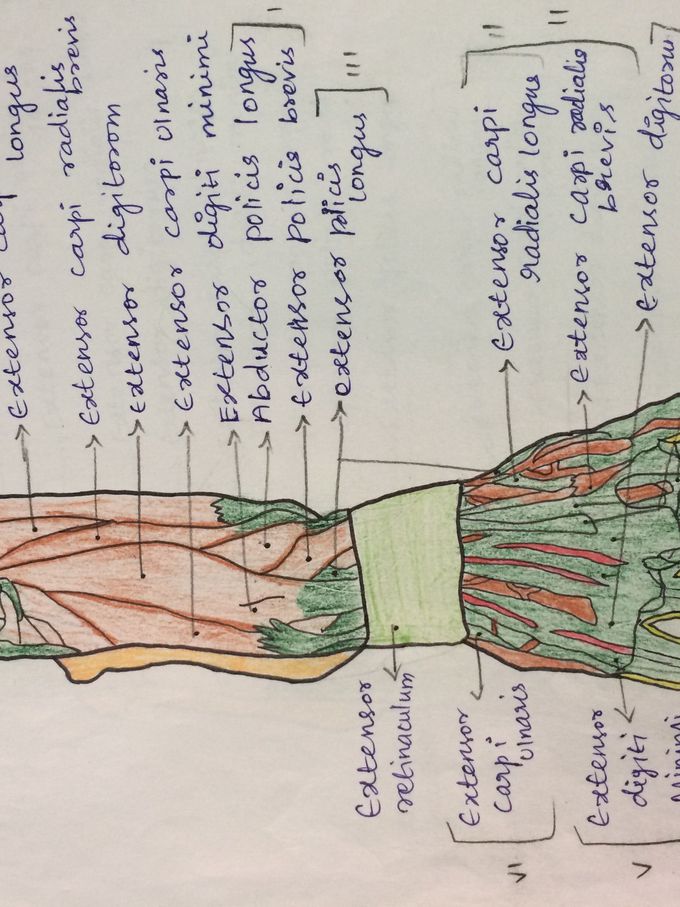 Extensor longus
Extensor carpi radialis
brevis
extensor digitorom
extensor carpi ulnaris
Extensor digiti minimi
Abductor policis longus
I
Extensor policis brevis
extensor policis
longus
III
Extensor
retinaculum
Extensor
carpi
ulnaris
VI
Extensor carpi
radialis longus
II
Extensor carpi radialis
brevis
II
Extensor
digiti
minimi
V
extensor digitorum